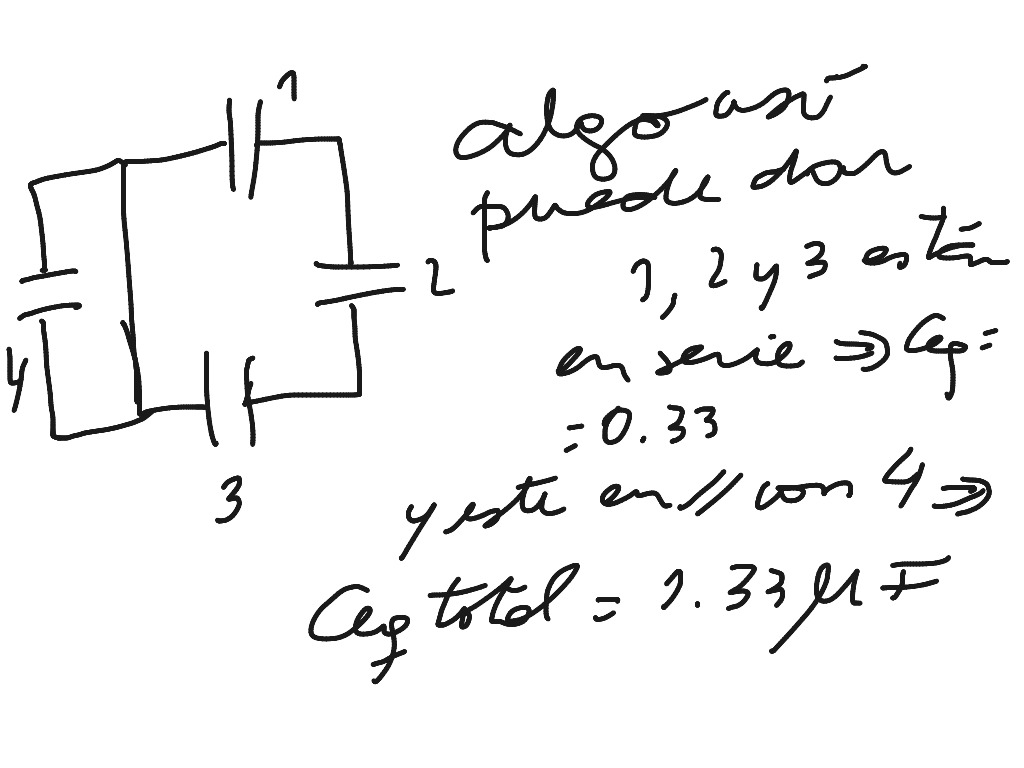 1
algo así
puede dar
2
1, 2 y 3 están
en serie ⇒ Ceq =
= 0.33
4
3
y este en // con 4 ⇒
Ceq total = 1.33 μF